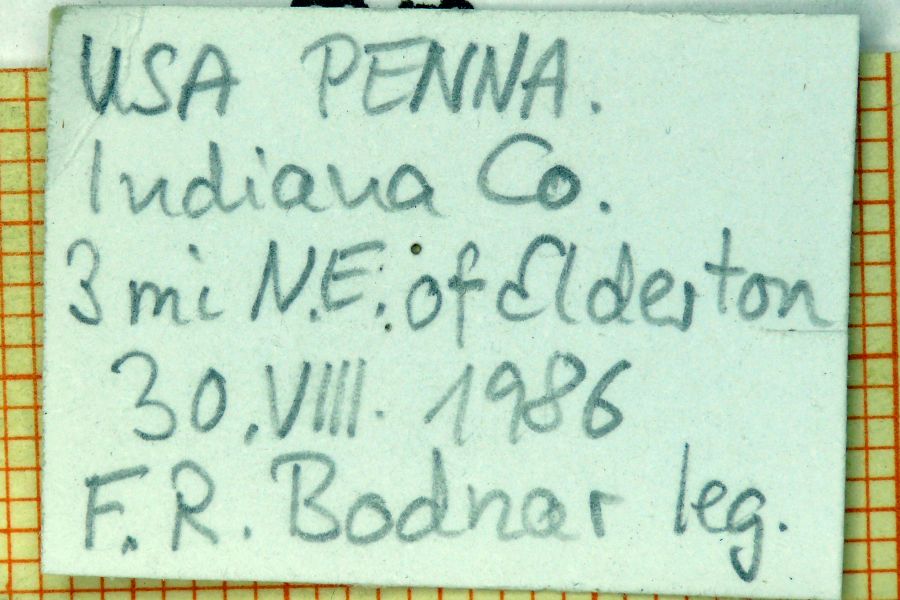 USA PENNA.
Indiana Co.
3 mi N.E. of Elderton
30.VIII. 1986
F.R. Bodnar leg.